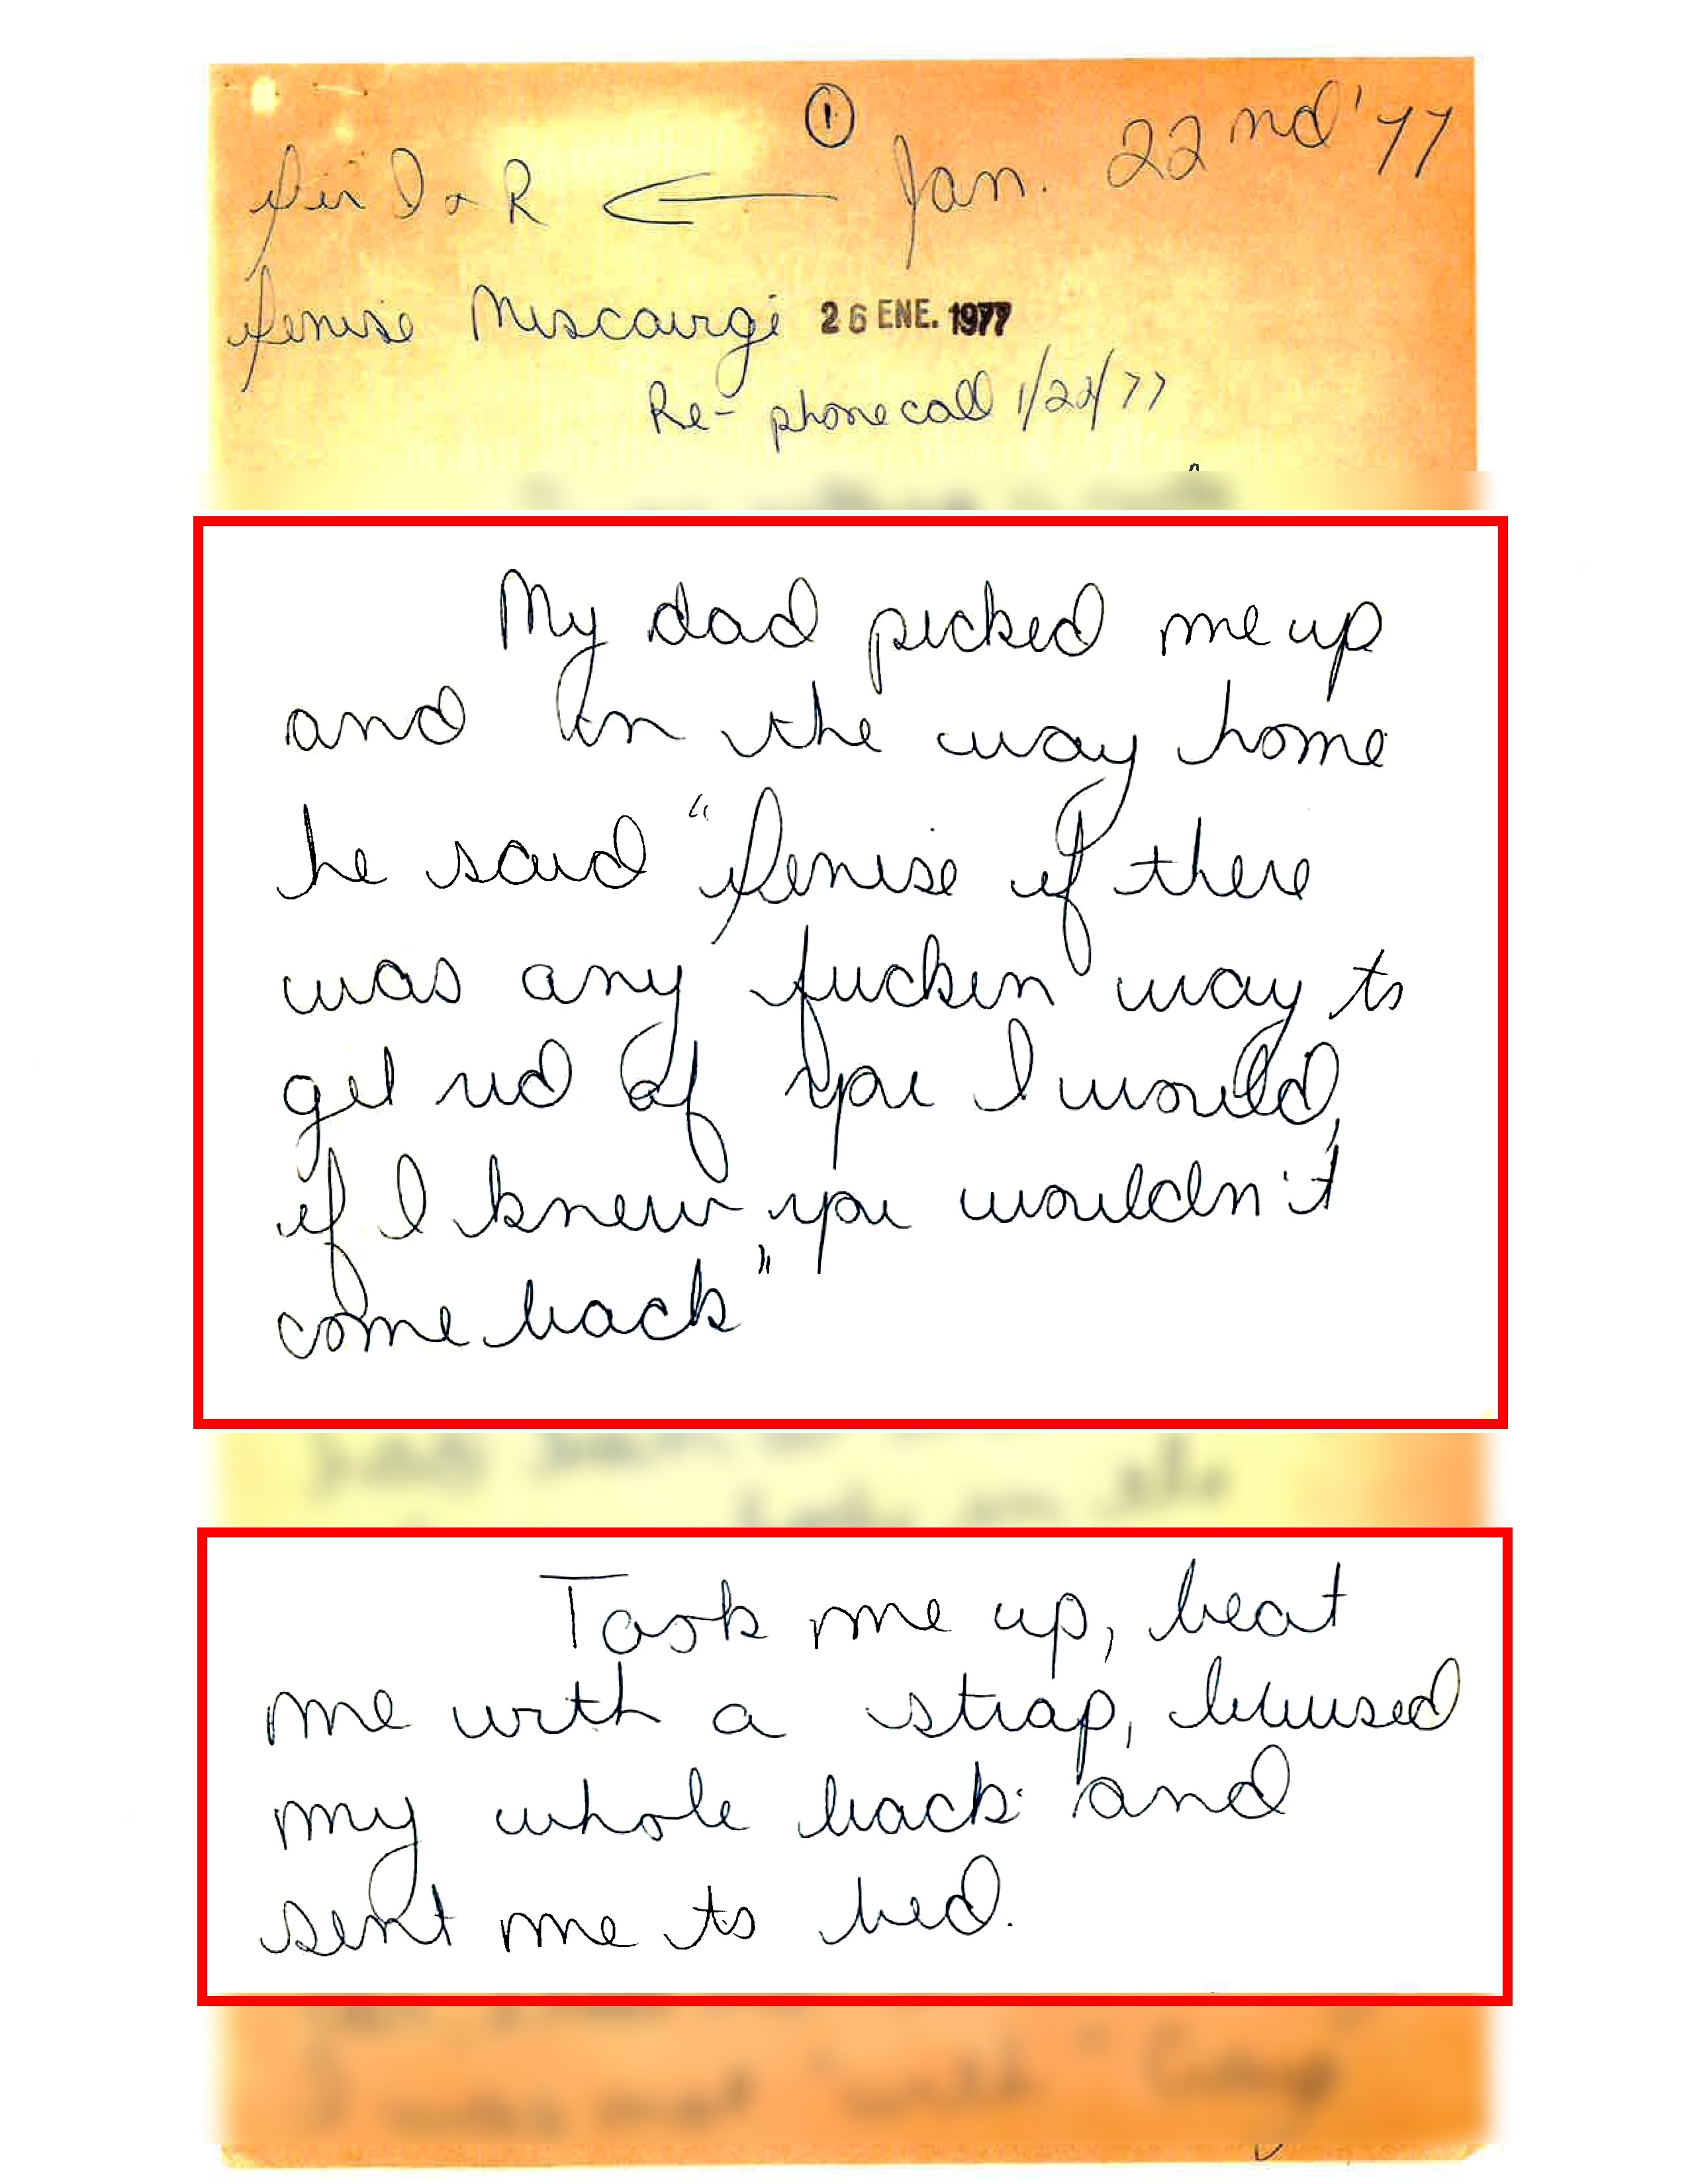 ①
Dir I & R ← Jan. 22nd '77
Denise Miscavige 26 ENE. 1977
Re- phone call 1/22/77
My dad picked me up
and on the way home
he said "Denise if there
was any fuckin way to
get rid of you I would,
if I knew you wouldn't
come back"
Took me up, beat
me with a strap, bruised
my whole back and
sent me to bed.